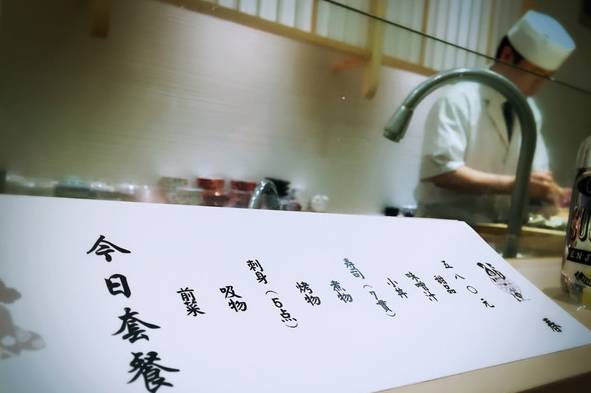 今日套餐
前菜
吸物
刺身(5点)
烤物
煮物
寿司(7貫)
小丼
味噌汁
甜品
五八〇元
ENJ